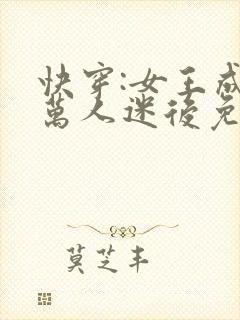 快穿:女主成
萬人迷後免
莫芝丰